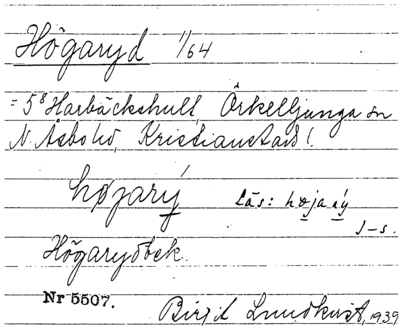 Högaryd 1/64
= 5⁸ Harbäckshult, Örkelljunga sn
N. Åsbo hd, Kristianstads l.
høzarý läs: høja rý
J-s.
Högarydbek.
Nr 5507. Birgit Lundkvist, 1939